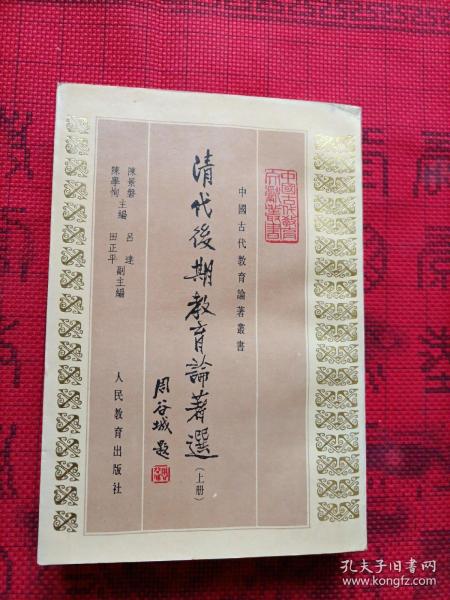 中國古代教育論著叢書
清代後期教育論著選
(上册)
周谷城題
陳景磐
陳學恂
主編
呂達
田正平
副主編
人民教育出版社
孔夫子旧书网
www.kongfz.com